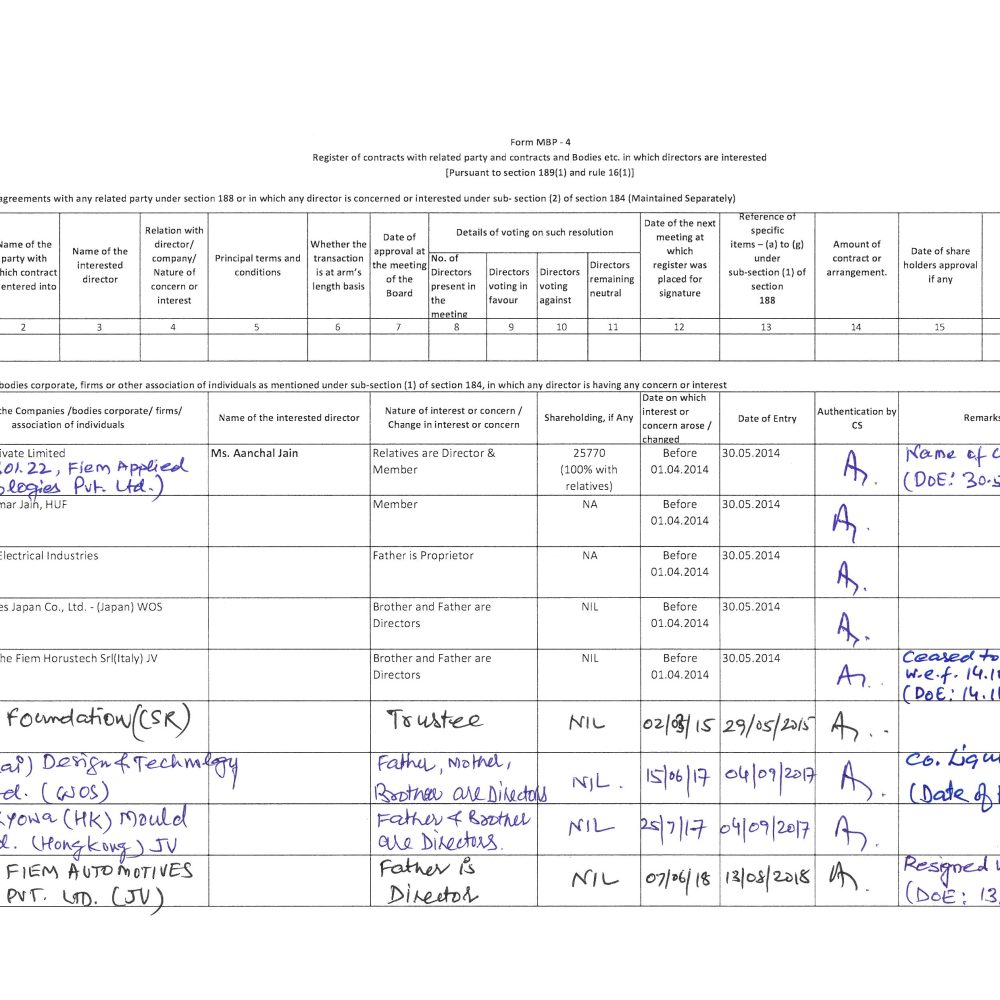 Form MBP - 4
Register of contracts with related party and contracts and Bodies etc. in which directors are interested
[Pursuant to section 189(1) and rule 16(1)]
agreements with any related party under section 188 or in which any director is concerned or interested under sub- section (2) of section 184 (Maintained Separately)
Name of the party with which contract entered into
Name of the interested director
Relation with director/ company/ Nature of concern or interest
Principal terms and conditions
Whether the transaction is at arm's length basis
Date of approval at the meeting of the Board
Details of voting on such resolution
No. of Directors present in the meeting
Directors voting in favour
Directors voting against
Directors remaining neutral
Date of the next meeting at which register was placed for signature
Reference of specific items – (a) to (g) under sub-section (1) of section 188
Amount of contract or arrangement.
Date of share holders approval if any
2 3 4 5 6 7 8 9 10 11 12 13 14 15
bodies corporate, firms or other association of individuals as mentioned under sub-section (1) of section 184, in which any director is having any concern or interest
the Companies /bodies corporate/ firms/ association of individuals
Name of the interested director
Nature of interest or concern / Change in interest or concern
Shareholding, if Any
Date on which interest or concern arose / changed
Date of Entry
Authentication by CS
Remarks
ivate Limited
.01.22, Fiem Applied
ologies Pvt. Ltd.)
Ms. Aanchal Jain
Relatives are Director & Member
25770 (100% with relatives)
Before 01.04.2014
30.05.2014
Name of
(DoE: 30.5
mar Jain, HUF
Member
NA
Before 01.04.2014
30.05.2014
Electrical Industries
Father is Proprietor
NA
Before 01.04.2014
30.05.2014
es Japan Co., Ltd. - (Japan) WOS
Brother and Father are Directors
NIL
Before 01.04.2014
30.05.2014
he Fiem Horustech Srl(Italy) JV
Brother and Father are Directors
NIL
Before 01.04.2014
30.05.2014
Ceased to
w.e.f. 14.1
(DoE: 14.1
Foundation (CSR)
Trustee
NIL
29/05/2015
ai) Design & Technology
d. (WOS)
Father, Mother,
Brother are Directors
NIL.
15/06/17
04/09/2017
Co. Liqu
(Date of
Kyowa (HK) Mould
d. (Hongkong) JV
Father & Brother
are Directors.
NIL
25/7/17
04/09/2017
FIEM AUTOMOTIVES
PVT. LTD. (JV)
Father is
Director
NIL
07/06/18
13/08/2018
Resigned
(DoE: 13